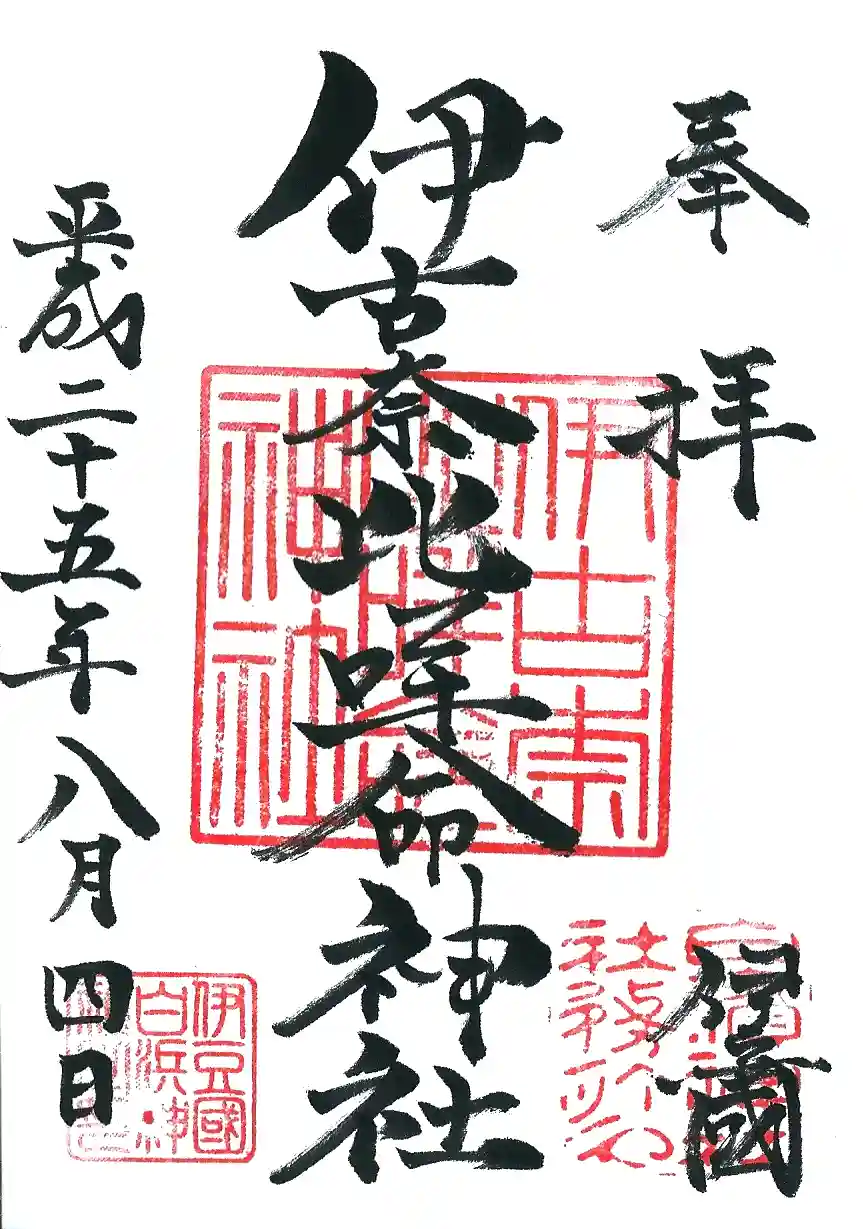 奉拝
伊豆國
社務所印
伊古奈比咩命神社
伊古奈
比咩命
神社
平成二十五年八月四日
伊豆國
白浜・神